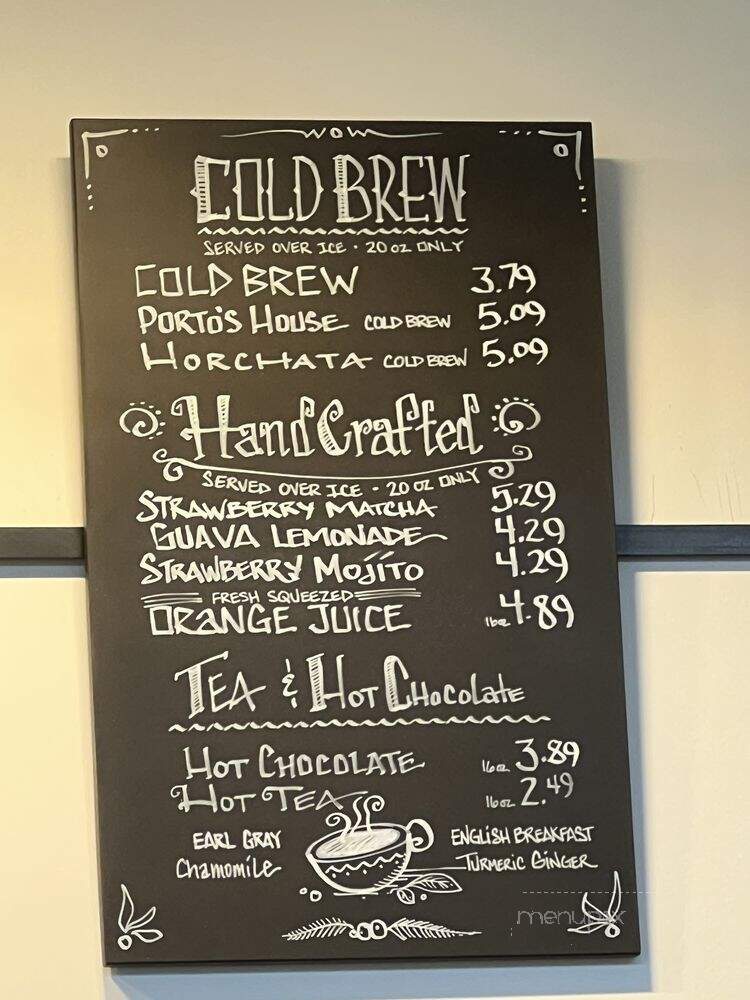 WOW
COLD BREW
SERVED OVER ICE · 20 OZ ONLY
COLD BREW 3.79
PORTO'S HOUSE COLD BREW 5.09
HORCHATA COLD BREW 5.09
Hand Crafted
SERVED OVER ICE - 20 OZ ONLY
STRAWBERRY MATCHA 5.29
GUAVA LEMONADE 4.29
STRAWBERRY MOJITO 4.29
FRESH SQUEEZED
ORANGE JUICE 16oz 4.89
TEA & HOT CHOCOLATE
HOT CHOCOLATE 16oz 3.89
HOT TEA 16oz 2.49
EARL GRAY ENGLISH BREAKFAST
Chamomile TURMERIC GINGER
menupix